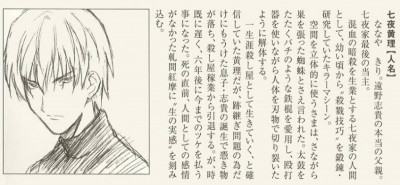 七夜黄理[人名]
ななや きり。遠野志貴の本当の父親。
七夜家最後の当主。
混血の暗殺を生業とする七夜家の人間
として、幼い頃から“殺戮技巧”を鍛錬・
研究していたキラーマシーン。
空間を立体的に使うさまは、さながら
巣を張った蜘蛛とさえ言われた。太鼓を
たたくバチのような鉄棍を愛用し、殴打
器を使いながら人体を刃物で切り裂いた
ように解体する。
一生涯殺し屋として生きていく、と確
信していた黄理だが、跡継ぎ問題の為だ
けにもうけた志貴の誕生で憑き物
が落ち、殺し屋稼業から引退する。が、時
既に遅く、六年後に今までのツケを払う
となった。死の直前、人間としての感情
がなかった軋間紅摩に“生の実感”を刻み
込む。